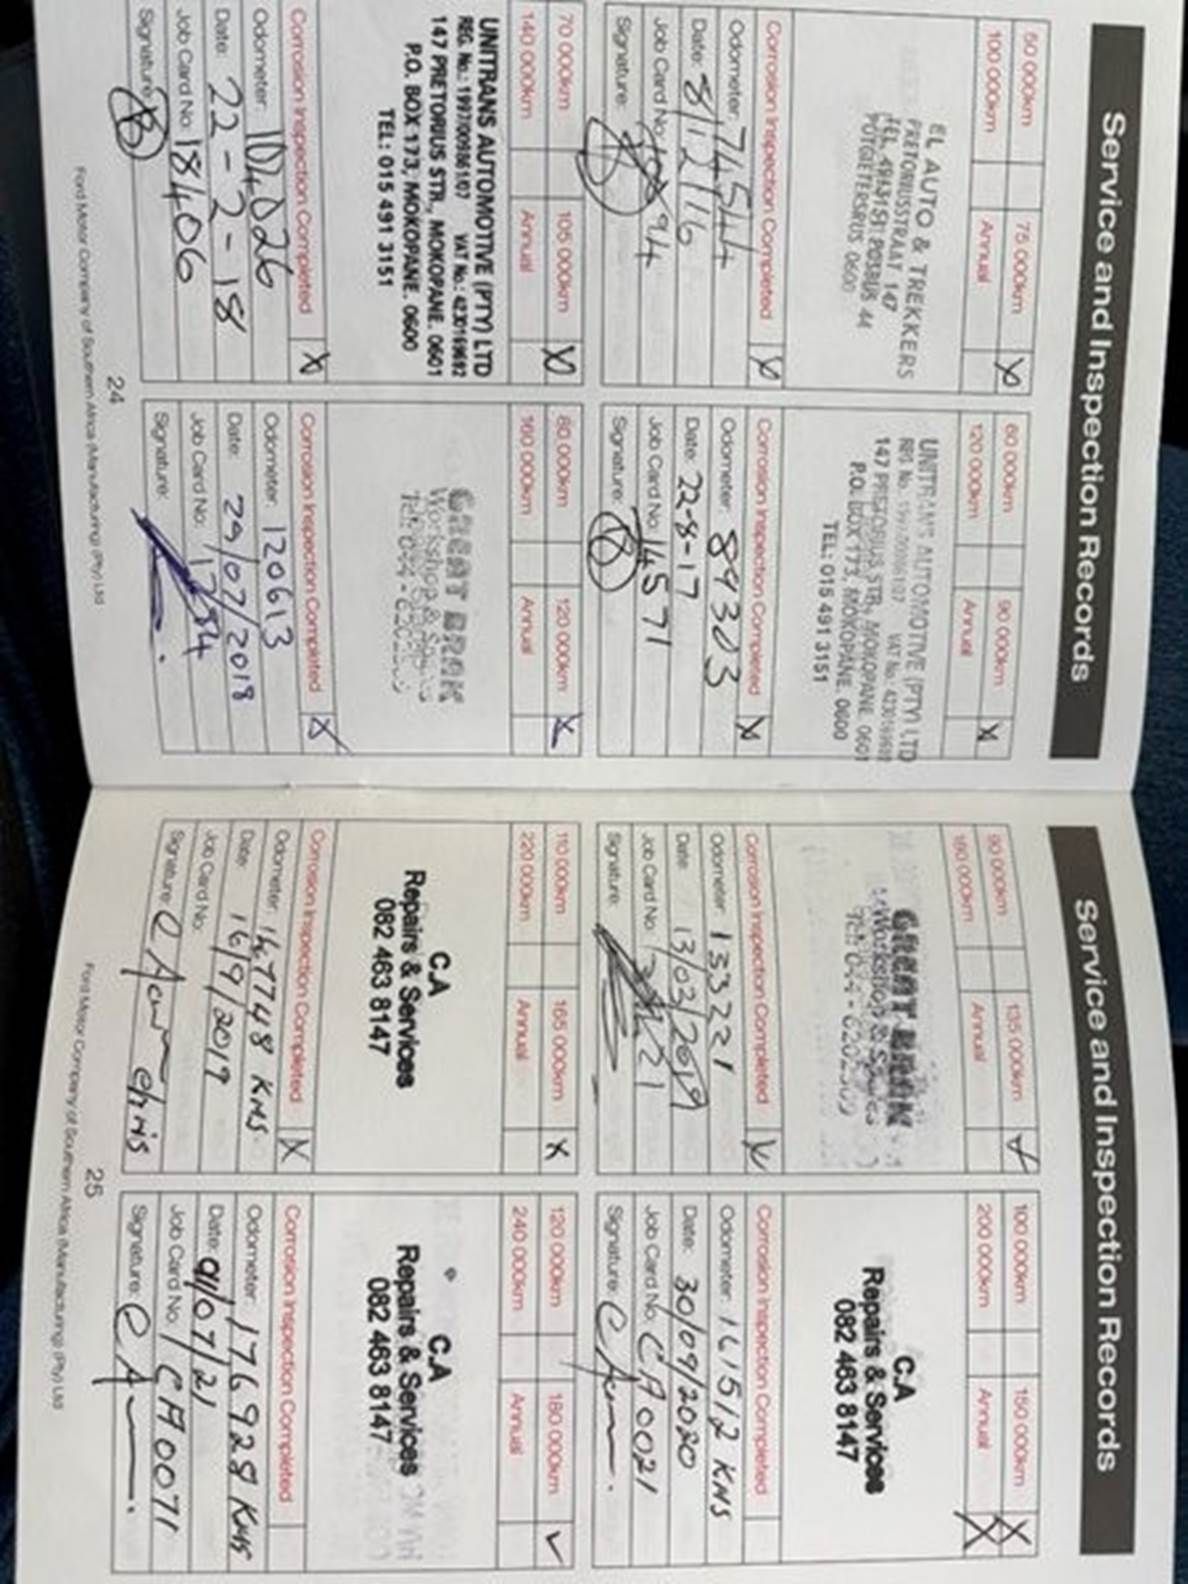 Service and Inspection Records
50 000km
75 000km X
100 000km
Annual
EL AUTO & TREKKERS
PRETORIUSSTRAAT 147
TEL. 4913151 POSBUS 44
POTGIETERSRUS 0600
Corrosion Inspection Completed X
Odometer: 74544
Date: 8/12/16
Job Card No:
Signature:
60 000km
90 000km X
120 000km
Annual
UNITRANS AUTOMOTIVE (PTY) LTD
REG. No.: 1997/009061/07 VAT No.: 4230169692
147 PRETORIUS STR., MOKOPANE. 0601
P.O. BOX 173, MOKOPANE. 0600
TEL: 015 491 3151
Corrosion Inspection Completed X
Odometer: 89303
Date: 22-8-17
Job Card No: 14571
Signature:
70 000km
105 000km X
140 000km
Annual
UNITRANS AUTOMOTIVE (PTY) LTD
REG. No.: 1997/009061/07 VAT No.: 4230169692
147 PRETORIUS STR., MOKOPANE. 0601
P.O. BOX 173, MOKOPANE. 0600
TEL: 015 491 3151
Corrosion Inspection Completed X
Odometer: 104026
Date: 22-2-18
Job Card No: 18406
Signature:
80 000km
120 000km X
160 000km
Annual
GREAT BRAK
Workshop & Spares
Tel: 044 - 6202
Corrosion Inspection Completed X
Odometer: 120613
Date: 29/07/2018
Job Card No:
Signature:
24
Ford Motor Company of Southern Africa (Manufacturing) (Pty) Ltd
Service and Inspection Records
90 000km
135 000km X
180 000km
Annual
GREAT BRAK
Workshop & Spares
Tel: 044 - 6202
Corrosion Inspection Completed X
Odometer: 133221
Date: 13/03/2019
Job Card No:
Signature:
100 000km
150 000km X
200 000km
Annual X
C.A
Repairs & Services
082 463 8147
Corrosion Inspection Completed
Odometer: 161512 KMS
Date: 30/09/2020
Job Card No: CA0021
Signature:
110 000km
165 000km X
220 000km
Annual
C.A
Repairs & Services
082 463 8147
Corrosion Inspection Completed X
Odometer: 147748 KMS
Date: 16/9/2019
Job Card No:
Signature: Chris
120 000km
180 000km ✓
240 000km
Annual
C.A
Repairs & Services
082 463 8147
Corrosion Inspection Completed
Odometer: 176928 KMS
Date: 01/07/21
Job Card No: CA0071
Signature:
25
Ford Motor Company of Southern Africa (Manufacturing) (Pty) Ltd